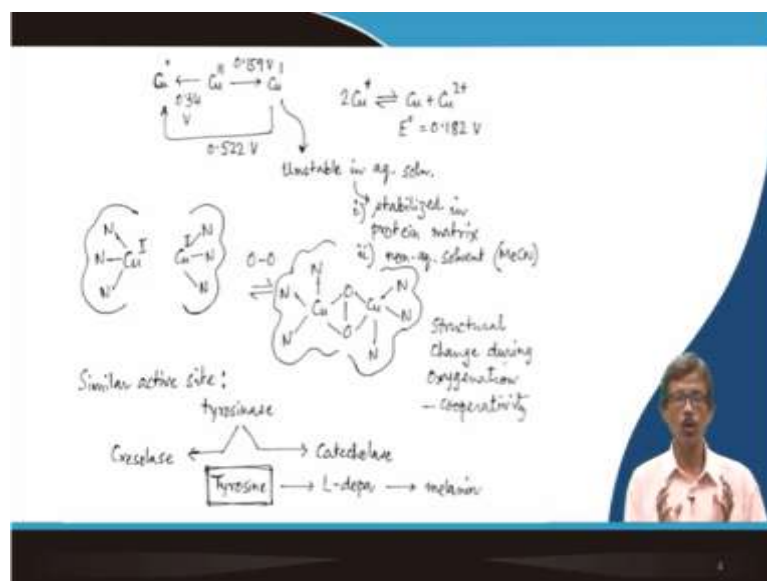 0.159 V
Cu° ← Cu^II → Cu^I
0.34 V
0.522 V
2Cu⁺ ⇌ Cu + Cu²⁺
E° = 0.182 V
Unstable in aq. soln.
i) stabilized in
protein matrix
ii) non-aq. solvent (MeCN)
N N
N Cu^I Cu^I N
N N
O-O
⇌
N N
N O N
Cu Cu
N O N
Structural
Change during
Oxygenation
– cooperativity
Similar active site:
tyrosinase
Cresolase ← → Catecholase
Tyrosine → L-dopa → melanin
4